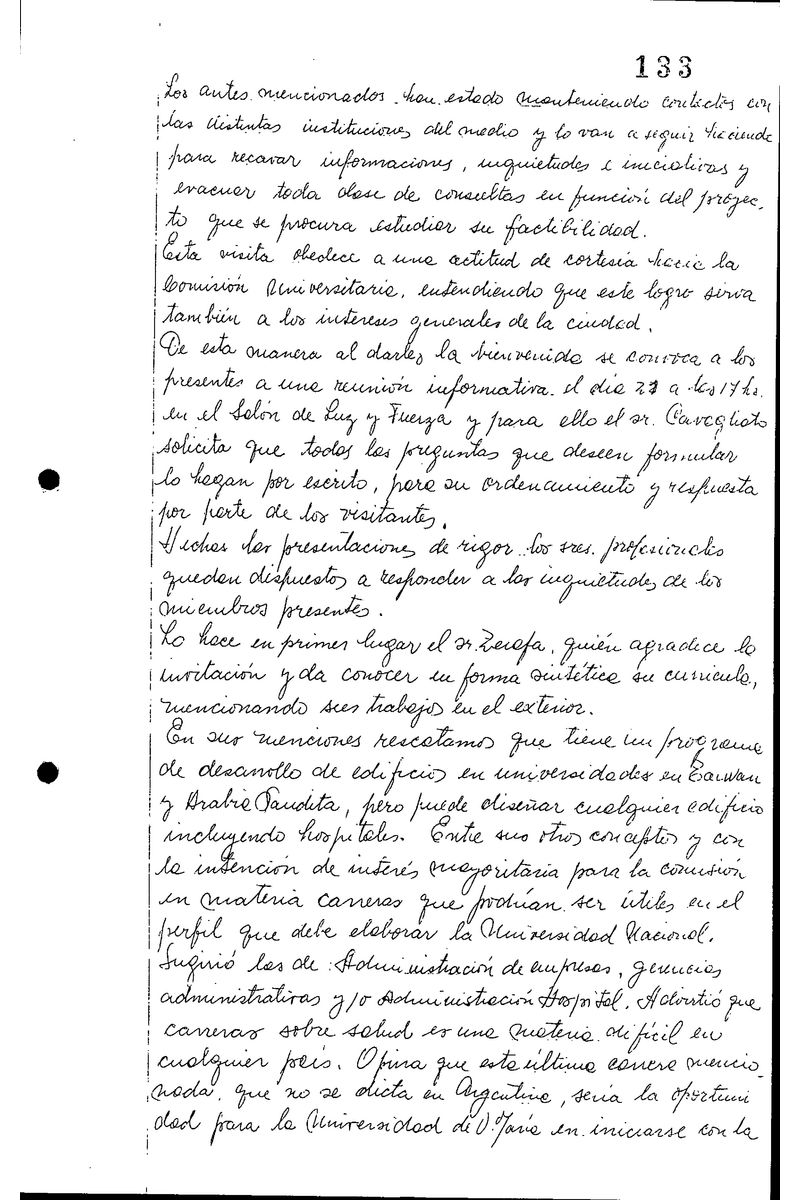 133
Los antes mencionados han estado manteniendo contactos con
las distintas instituciones del medio y lo van a seguir haciendo
para recavar informaciones, inquietudes e iniciativas y
evacuar toda clase de consultas en función del proyec-
to que se procura estudiar su factibilidad.
Esta visita obedece a una actitud de cortesía hacia la
Comisión Universitaria, entendiendo que este logro sirva
también a los intereses generales de la ciudad.
De esta manera al darles la bienvenida se convoca a los
presentes a una reunión informativa el día a las 17 hs.
en el Salón de Luz y Fuerza y para ello el sr. Cavagliato
solicita que todas las preguntas que deseen formular
lo hagan por escrito, para su ordenamiento y respuesta
por parte de los visitantes.
Hechas las presentaciones de rigor los sres. profesionales
quedan dispuestos a responder a las inquietudes de los
miembros presentes.
Lo hace en primer lugar el sr. Zerafa, quién agradece la
invitación y da conocer en forma sintética su curricula,
mencionando sus trabajos en el exterior.
En sus menciones rescatamos que tiene un programa
de desarrollo de edificios en universidades en
y Arabia Saudita, pero puede diseñar cualquier edificio
incluyendo hospitales. Entre sus otros conceptos y con
la intención de interés mayoritaria para la comisión
en materia carreras que podrían ser útiles en el
perfil que debe elaborar la Universidad Nacional.
Sugirió las de: Administración de empresas, gerencias
administrativas y/o Administración Hospital. Advirtió que
carreras sobre salud es una materia difícil en
cualquier país. Opina que esta última carrera mencio-
nada, que no se dicta en Argentina, sería la oportuni
dad para la Universidad de V. María en iniciarse con la